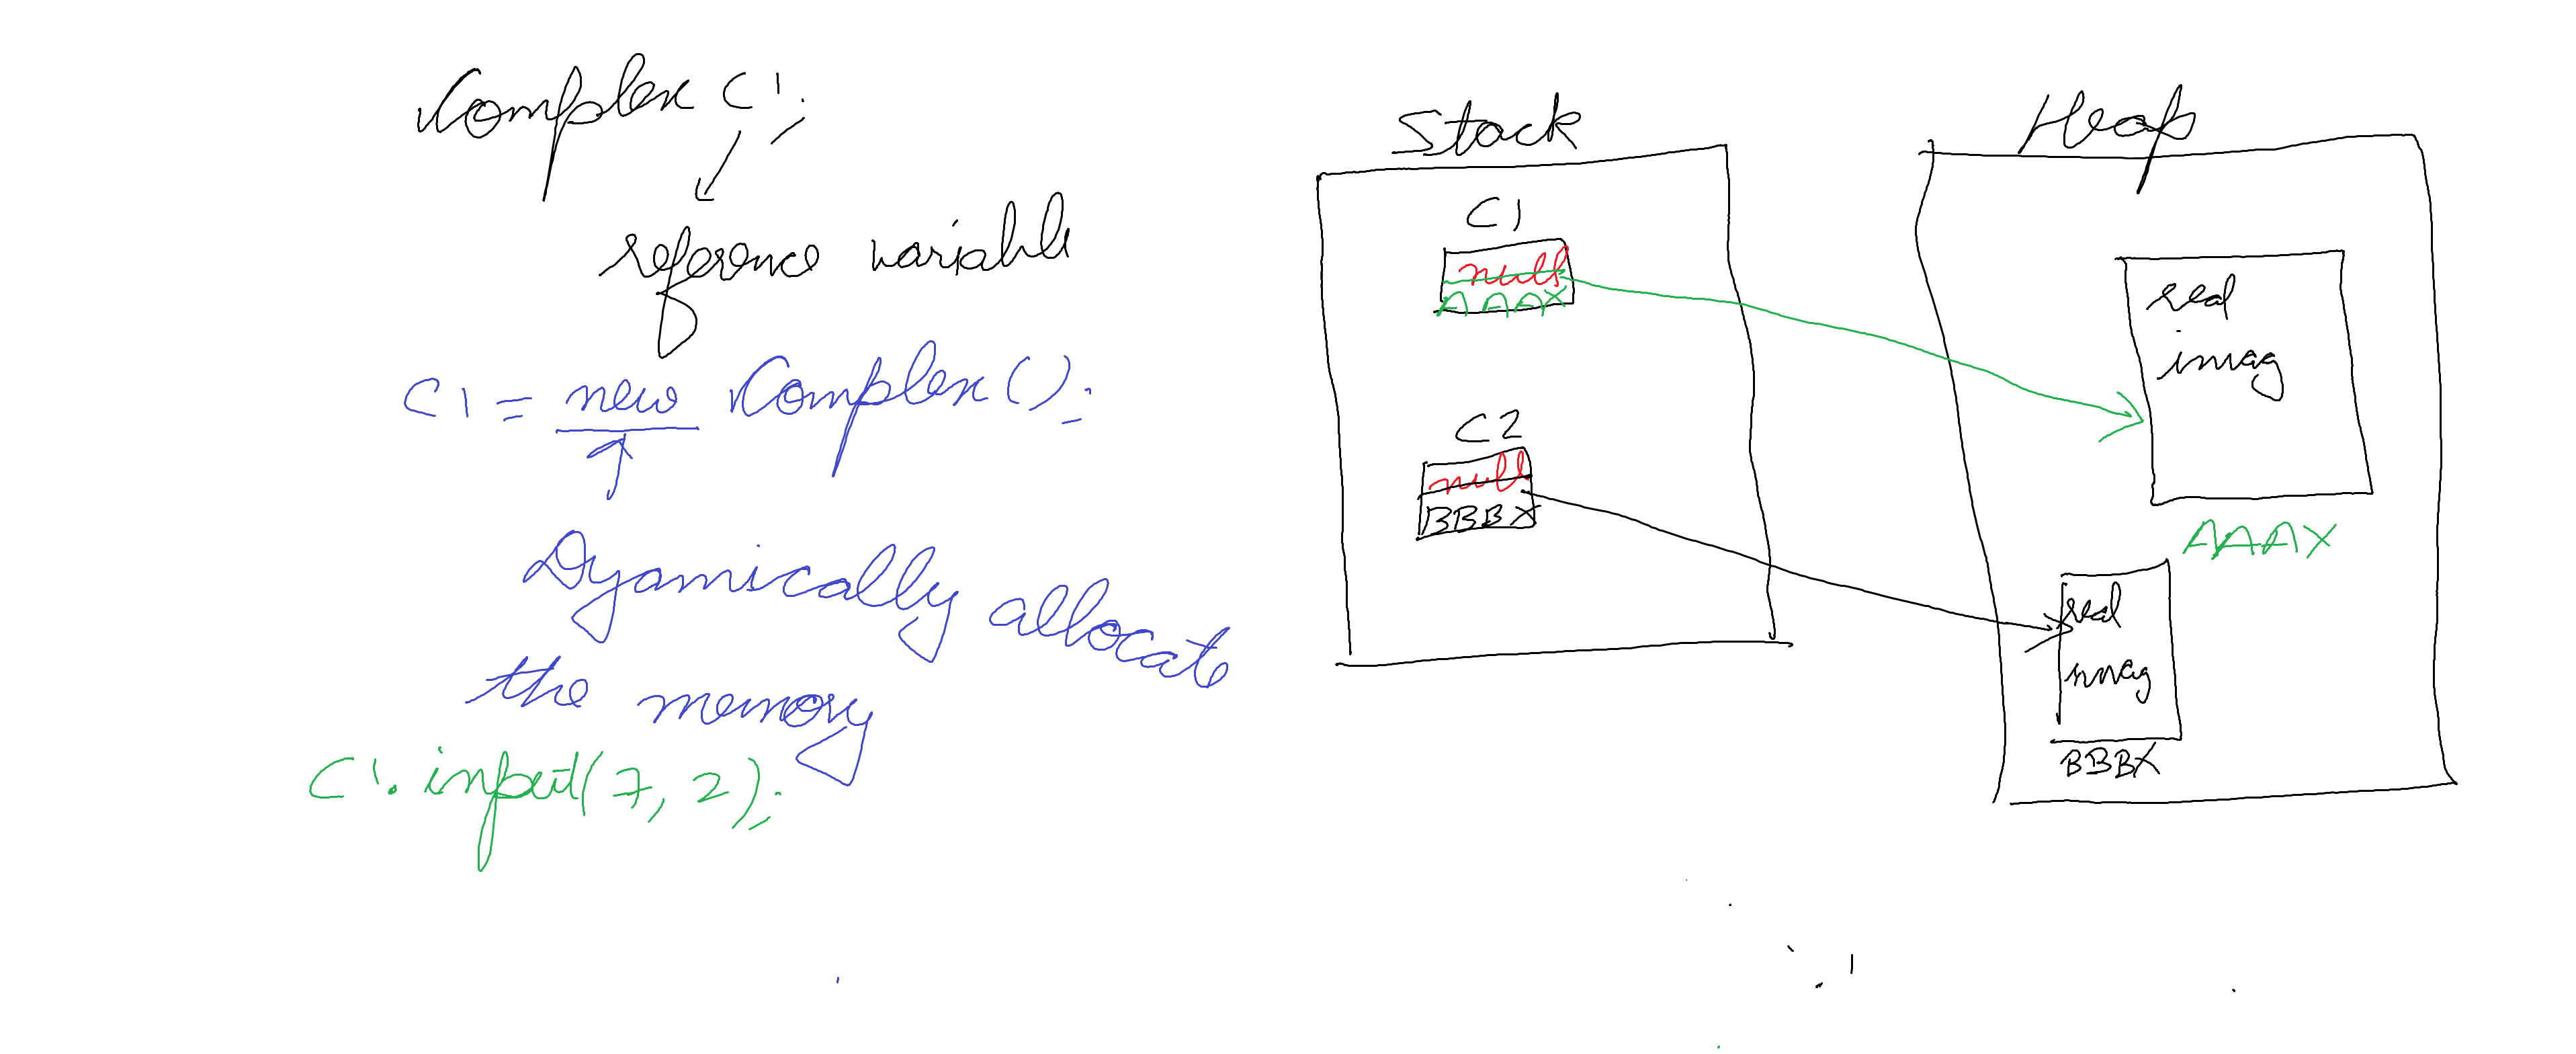 Complex C1;
reference variable
C1 = new Complex();
Dyamically allocate
the memory
C1.input(7, 2);
Stack
C1
null
AAAX
C2
null
BBBX
Heap
real
imag
AAAX
real
imag
BBBX